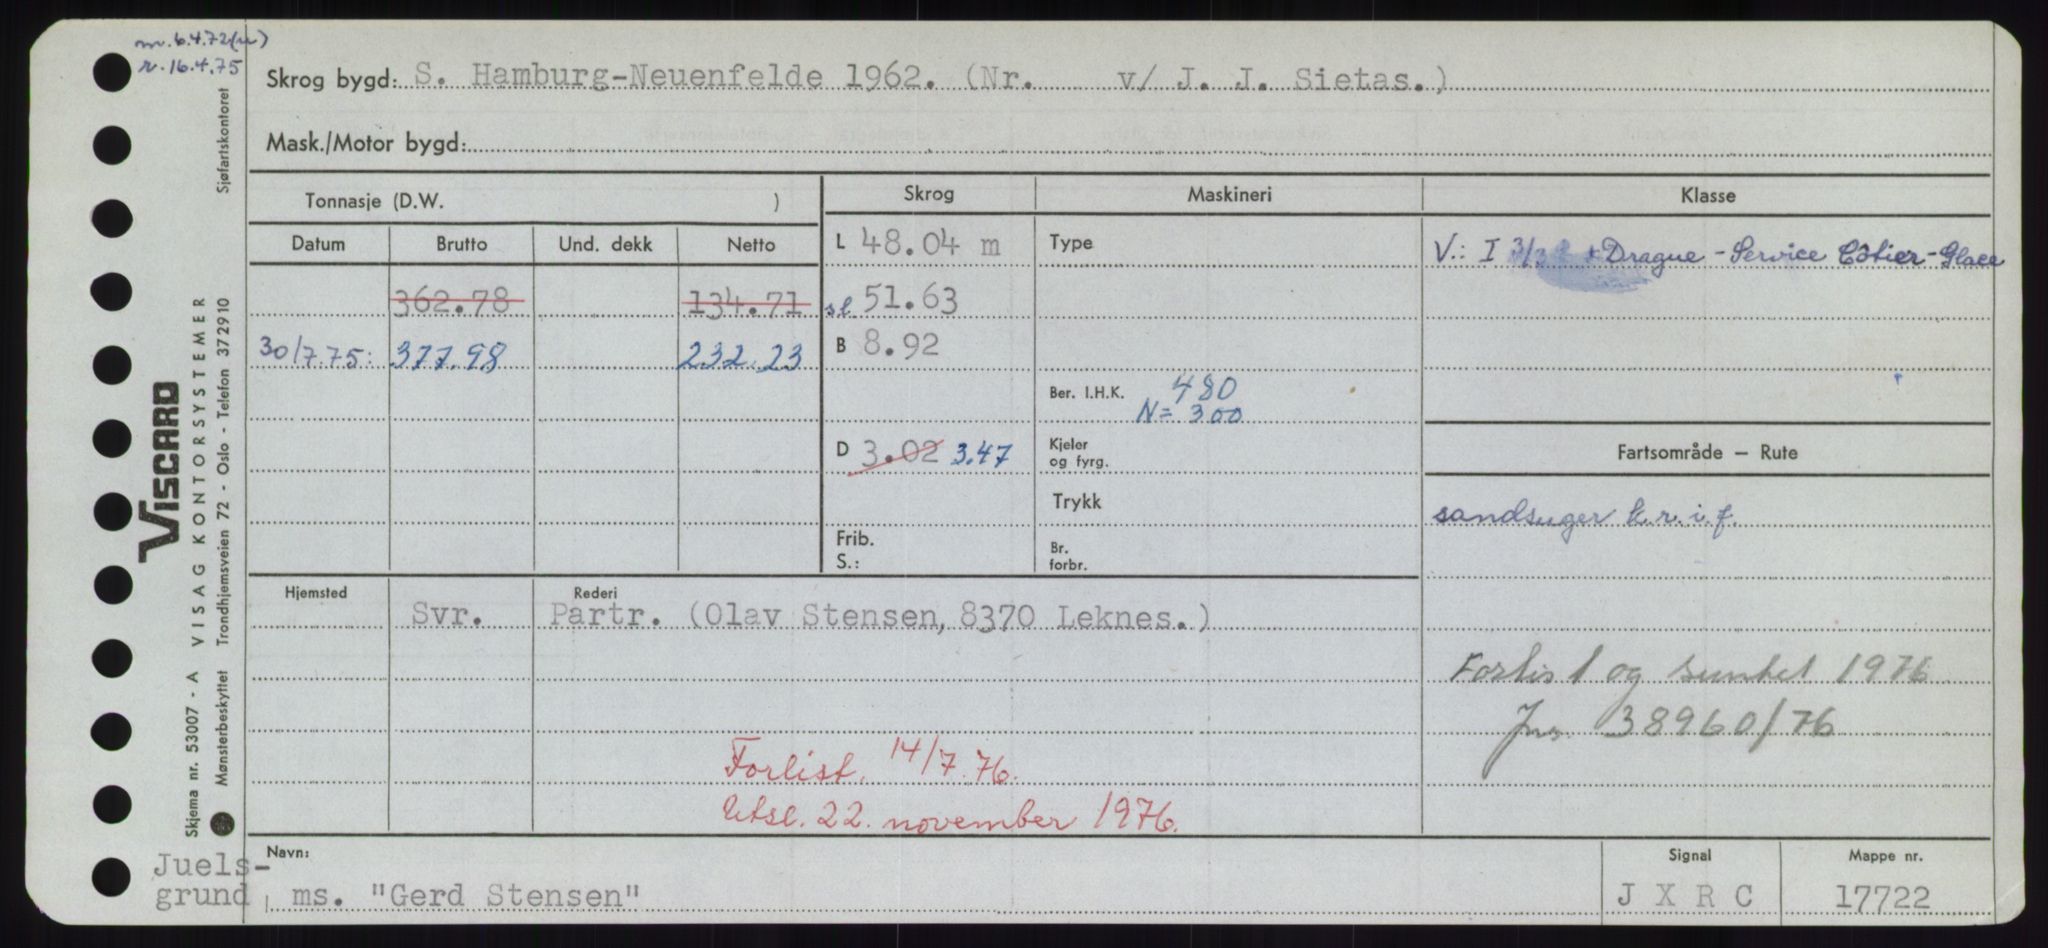 m. 6.4.72(u)
r. 16.4.75
Skrog bygd: S. Hamburg-Neuenfelde 1962. (Nr. v/ J. J. Sietas.)
Mask./Motor bygd:
Tonnasje (D.W. )
Skrog
Maskineri
Klasse
Datum Brutto Und. dekk Netto
L 48.04 m
Type
V.: I 3/3 + Drague - Service Côtier - Glace
362.78 134.71
sl 51.63
30/7.75: 377.98 232.23
B 8.92
Ber. I.H.K. 480
N = 300
D 3.02 3.47
Kjeler
og fyrg.
Fartsområde — Rute
Trykk
sandsuger k.r.i.f.
Frib.
S.:
Br.
forbr.
Hjemsted
Rederi
Svr. Partr. (Olav Stensen, 8370 Leknes.)
Forlist og sunket 1976
Jnr. 38960/76
Forlist. 14/7.76.
Utsl. 22. november 1976.
Juels-
grund
Navn:
ms. "Gerd Stensen"
Signal
J X R C
Mappe nr.
17722
VISCARD
Skjema nr. 53007 - A VISAG KONTORSYSTEMER
Mønsterbeskyttet Trondhjemsveien 72 - Oslo - Telefon 372910 Sjøfartskontoret